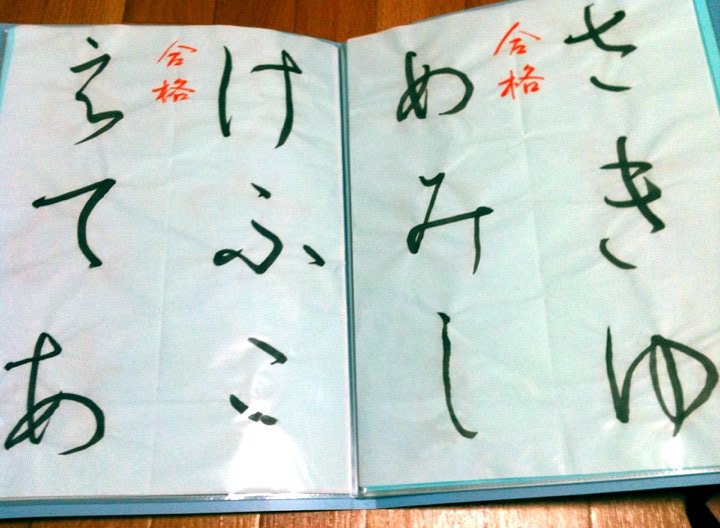 さきゆ
合格
めみし
けふこ
合格
えてあ